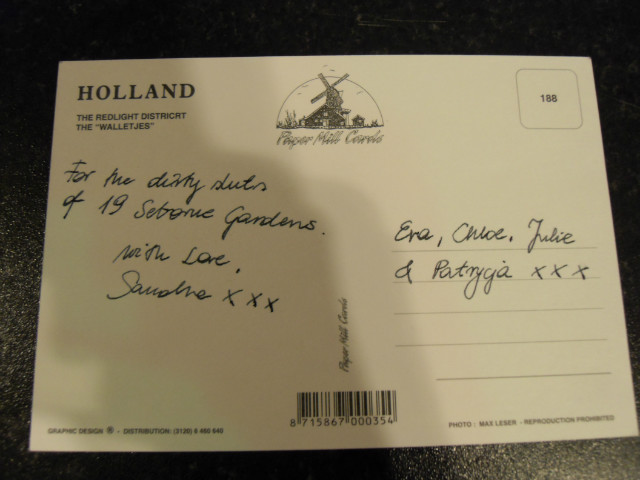 HOLLAND
THE REDLIGHT DISTRICRT
THE "WALLETJES"
Paper Mill Cards
188
For the dirty sluts
of 19 Gardens.
With Love,
Sandra x x x
Eva, Chloe, Julie
& Patrycja x x x
Paper Mill Cards
8 715867 000354
GRAPHIC DESIGN ® - DISTRIBUTION: (3120) 6 460 640
PHOTO : MAX LESER - REPRODUCTION PROHIBITED